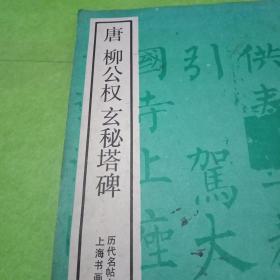 唐 柳公权 玄秘塔碑
历代名帖
上海书画
供
引駕大
國寺上座